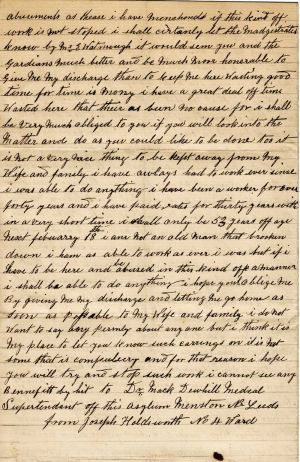 abuuments as these i have menchonds if this kind off
work is not stoped i shall cirtanly let the madgestrates
know by Mr E Walnough it would seem you and the
Gardians much better and be much more honerable to
Give Me My discharge than to keep Me here Wasting good
time for time is mony i have a great deal off time
Wasted here that their as been no cause for i shall
be very much obliged to you if you will look into the
Matter and do as you could like to be done too it
is not a very nice thing to be kept away from My
Wife and family i have awlays had to work ever since
i was able to do anything i have been a worker for over
forty years and i have paid rates for thirty years with
in a very short time i shall only be 53 years off age
next febuarry 18th i am not an old man that broken
down i ham as able to work as ever i was but if i
have to be here and be abused in this kind off a manner
i shall be able to do anything i hope you'l oblige Me
By giveing Me My discharge and letting Me go home as
soon as possable to My Wife and family i do not
want to say boy about any one but i think it is
My place to let you know such carrings on it is not
some that is compulsery and for that reason i hope
you will try and stop such work i cannot see any
Bennefitt by hit to Dr Mack Dowhill Medeal
Supertendant off this asylum Menston Nr Leeds
from Joseph Holdsworth No 4 Ward